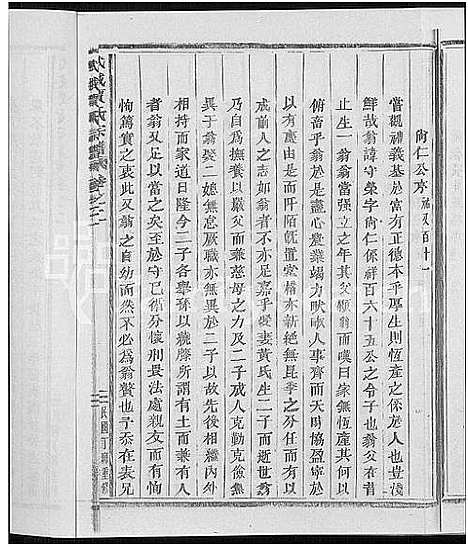 尙仁公序 祐又百十一
當觀禮義基於富有正德本乎厚生則恆產之係於人也豈淺
鮮哉翁諱守榮字尙仁係祥百六十五公之令子也翁父在昔
止生一翁翁當强立之年其父顧翁而嘆曰家無恆產其何以
俯畜乎翁於是盡心農業竭力畎畝人事齊而天時協盈寧於
以有慶由是而阡陌旣置棠棣絕無昆季之分任而有以
成前人之志如翁者不亦嘉乎娶妻黃氏生二子而逝世
乃自爲撫養以父道而兼慈母之力及二子成人克勤克儉無
異于翁娶二媳無怠厥職亦無異於二子以故先後相繼內外
相持而家道日隆今二子各舉孫以
所謂有土而兼有人
者翁又足以當之矣至於守己則分懷刑畏法處親友而有恂
恂篤實之衷此又翁之自幼而然不必爲翁贅也予忝在表兄
民國丁 重修